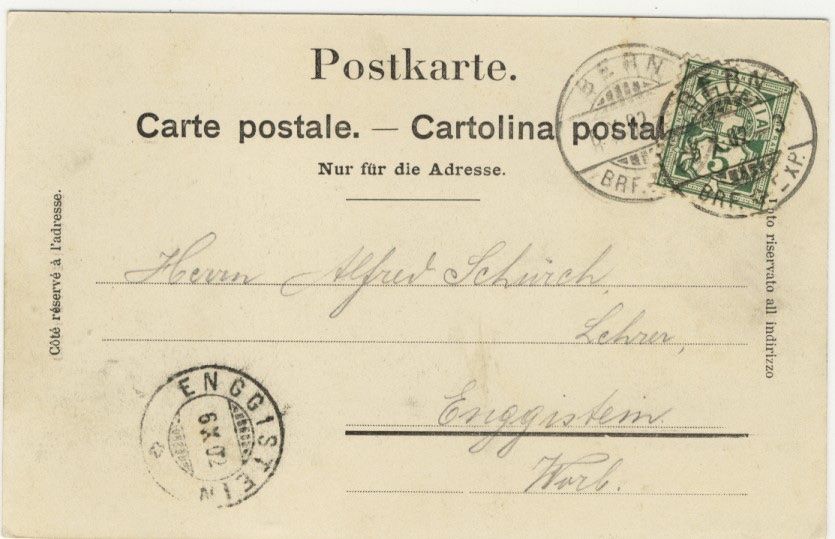 Postkarte.
Carte postale. — Cartolina postal
Nur für die Adresse.
Côté réservé à l'adresse.
riservato all indirizzo
BERN
BRF.
BERN
BRF. XP.
3
HELVETIA
5
Herrn Alfred Schürch,
Lehrer,
Enggistein
Worb.
ENGGISTEIN
6 X 02